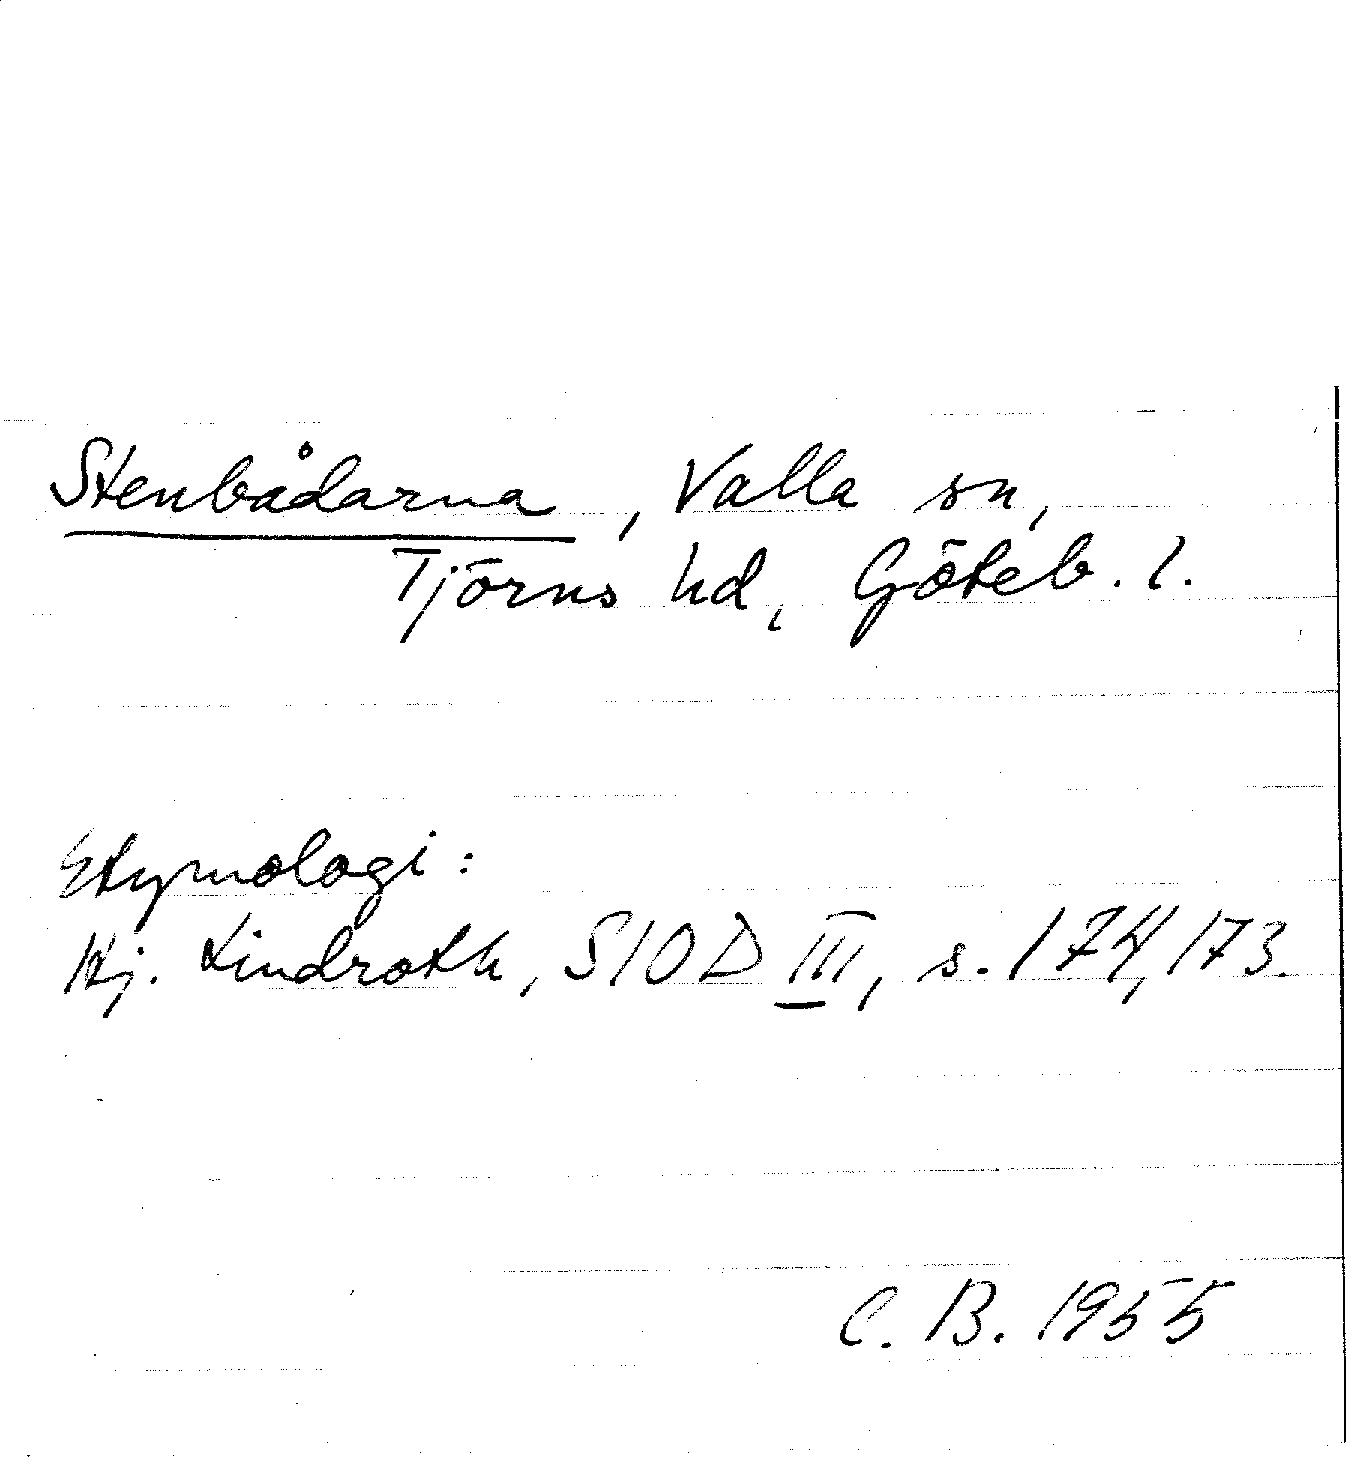 Stenbådarna, Valla sn,
Tjörns hd, Göteb. l.
Etymologi:
Hj. Lindroth, SIOD III, s. 174, 173.
C. B. 1955